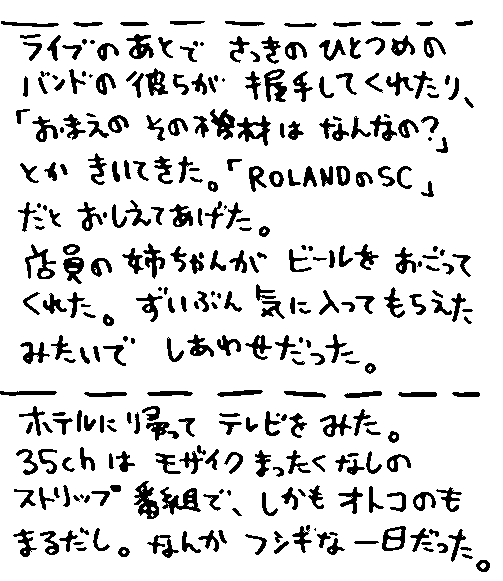 ライブのあとで さっきのひとつめの
バンドの彼らが 握手してくれたり、
「おまえの その機材は なんなの?」
とか きいてきた。「ROLANDのSC」
だと おしえてあげた。
店員の 姉ちゃんが ビールを おごって
くれた。ずいぶん 気に入ってもらえた
みたいで しあわせだった。
ホテルに帰って テレビを みた。
35chは モザイク まったくなしの
ストリップ番組で、しかも オトコのも
まるだし。なんか フシギな 一日だった。